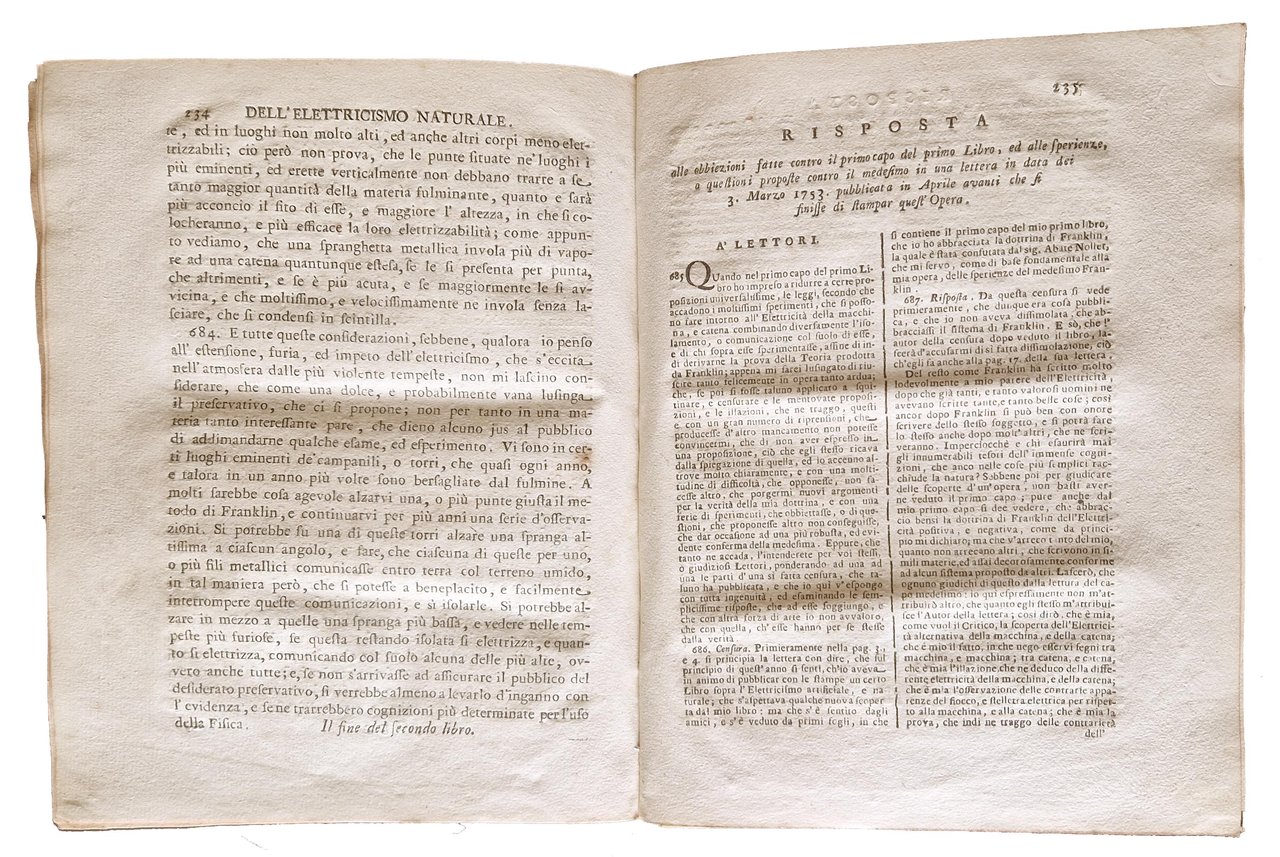 234 DELL'ELETTRICISMO NATURALE.
te, ed in luoghi non molto alti, ed anche altri corpi meno elet-
trizzabili; ciò però non prova, che le punte situate ne' luoghi i
più eminenti, ed erette verticalmente non debbano trarre a se
tanto maggior quantità della materia fulminante, quanto e sarà
più acconcio il sito di esse, e maggiore l' altezza, in che si co-
locheranno, e più efficace la loro elettrizzabilità; come appun-
to vediamo, che una spranghetta metallica invola più di vapo-
re ad una catena quantunque estesa, se le si presenta per punta,
che altrimenti, e se è più acuta, e se maggiormente le si av-
vicina, e che moltissimo, e velocissimamente ne invola senza la-
sciare, che si condensi in scintilla.
684. E tutte queste considerazioni, sebbene, qualora io penso
all' estensione, furia, ed impeto dell'elettricismo, che s'eccita
nell'atmosfera dalle più violente tempeste, non mi lascino con-
siderare, che come una dolce, e probabilmente vana lusinga
il preservativo, che ci si propone; non per tanto in una ma-
teria tanto interessante pare, che dieno alcuno jus al pubblico
di addimandarne qualche esame, ed esperimento. Vi sono in cer-
ti luoghi eminenti de' campanili, o torri, che quasi ogni anno,
e talora in un anno più volte sono bersagliate dal fulmine. A
molti sarebbe cosa agevole alzarvi una, o più punte giusta il me-
todo di Franklin, e continuarvi per più anni una serie d'osserva-
zioni. Si potrebbe su una di queste torri alzare una spranga al-
tissima a ciascun angolo, e fare, che ciascuna di queste per uno,
o più fili metallici comunicasse entro terra col terreno umido,
in tal maniera però, che si potesse a beneplacito, e facilmente
interrompere queste comunicazioni, e sì isolarle. Si potrebbe al-
zare in mezzo a quelle una spranga più bassa, e vedere nelle tem-
peste più furiose, se questa restando isolata si elettrizza, e quan-
to si elettrizza, comunicando col suolo alcuna delle più alte, ov-
vero anche tutte; e, se non s'arrivasse ad assicurare il pubblico del
desiderato preservativo, si verrebbe almeno a levarlo d'inganno con
l' evidenza, e se ne trarrebbero cognizioni più determinate per l'uso
della Fisica. Il fine del secondo libro.
235
RISPOSTA
alle obbiezioni fatte contro il primo capo del primo Libro, ed alle sperienze,
o questioni proposte contro il medesimo in una lettera in data dei
3. Marzo 1753. pubblicata in Aprile avanti che si
finisse di stampar quest' Opera.
A' LETTORI.
685 Quando nel primo capo del primo Li-
bro ho impreso a ridurre a certe pro-
posizioni universalissime, le leggi, secondo che
accadono i moltissimi sperimenti, che si posso-
no fare intorno all' Elettricità della macchi-
na, e catena combinando diversamente l'iso-
lamento, o comunicazione col suolo di esse,
e di chi sopra esse sperimentasse, affine di in-
di derivarne la prova della Teoria prodotta
da Franklin; appena mi sarei lusingato di riu-
scire tanto felicemente in opera tanto ardua;
che, se poi si fosse taluno applicato a squi-
tinare, e censurare e le mentovate proposi-
zioni, e le illazioni, che ne traggo, questi
e con un gran numero di riprensioni, che
producesse d'altro mancamento non potesse
convincermi, che di non aver espresso in
una proposizione, ciò che egli stesso ricava
dalla spiegazione di quella, ed io accenno al-
trove molto chiaramente, e con una molti-
tudine di difficoltà, che opponesse, non fa-
cesse altro, che porgermi nuovi argomenti
per la verità della mia dottrina, e con una
serie di sperimenti, che obbiettasse, o di que-
stioni, che proponesse altro non conseguisse,
che dar occasione ad una più robusta, ed evi-
dente conferma della medesima. Eppure, che
tanto ne accada, l'intenderete per voi stessi,
o giudiziosi Lettori, ponderando ad una ad
una le parti d'una sì fatta censura, che ta-
luno ha pubblicata, e che io qui v'espongo
con tutta ingenuità, ed esaminando le sem-
plicissime risposte, che ad esse soggiungo, e
che con altra forza di arte io non avvaloro,
che con quella, ch' esse hanno per se stesse
dalla verità.
686. Censura. Primieramente nella pag. 3.
e 4. si principia la lettera con dire, che sul
principio di quest'anno si sentì, ch'io aveva
in animo di pubblicar con le stampe un certo
Libro sopra l'Elettricismo artifiziale, e na-
turale; che s'aspettava qualche nuova scoper-
ta dal mio libro: ma che s'è sentito dagli
amici, e s'è veduto da primi fogli, in che
si contiene il primo capo del mio primo libro,
che io ho abbracciata la dottrina di Franklin,
la quale è stata confutata dal sig. Abate Nollet,
che mi servo, come di base fondamentale alla
mia opera, delle sperienze del medesimo Fran-
klin.
687. Risposta. Da questa censura si vede
primieramente, che dunque era cosa pubbli-
ca, e che io non aveva dissimolata; che ab-
bracciassi il sistema di Franklin. E sò, che l'
autor della censura dopo veduto il libro, la-
scerà d'accusarmi di sì fatta dissimulazione, ciò
ch'egli fa anche alla pag. 17. della sua lettera.
Del resto come Franklin ha scritto molto
lodevolmente a mio parere dell'Elettricità,
dopo che già tanti, e tanto valorosi uomini ne
avevano scritte tante, e tanto belle cose; così
ancor dopo Franklin si può ben con onore
scrivere dello stesso soggetto, e si potrà fare
lo stesso anche dopo molt' altri, che ne scri-
veranno. Imperciocchè e chi esaurirà mai
gli innumerabili tesori dell' immense cogni-
zioni, che anco nelle cose più semplici rac-
chiude la natura? Sebbene poi per giudicare
delle scoperte d'un'opera, non basti aver-
ne veduto il primo capo; pure anche dal
mio primo capo si dee vedere, che abbrac-
cio bensì la dottrina di Franklin dell'Elettri-
cità positiva, e negativa, come da princi-
pio mi dichiaro; ma che v'arreco tanto del mio,
quanto non arrecano altri, che scrivono in si-
mili materie, ed assai decorosamente conforme
ad alcun sistema proposto da altri. Lascerò, che
ognuno giudichi di questo dalla lettura del ca-
po medesimo: io qui espressamente non m'at-
tribuirò altro, che quanto egli stesso m'attribui-
sce l'Autor della lettera; così dirò, che è mia,
come vuol il Critico, la scoperta dell'Elettrici-
tà alternativa della macchina, e della catena;
che è mio il fatto, in che nego esservi segni tra
macchina, e macchina; tra catena, e catena,
che è mia l'illazione, che ne deduco della diffe-
rente elettricità della macchina, e della catena;
che è mia l'osservazione delle contrarie appa-
renze del fiocco, e stelletta elettrica per rispet-
to alla macchina, e alla catena; che è mia la
prova, che indi ne traggo delle contrarietà
dell'